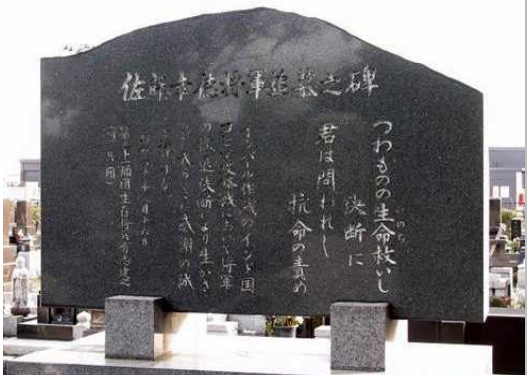 佐藤幸徳将軍追慕之碑
つわものの生命救いし
のち
決断に
君は問われし
抗命の責め
インパール作戦のインド国
コヒマ攻略戦において将軍
の撤退決断により生かさ
れた我らここに感謝の詠
を捧げる